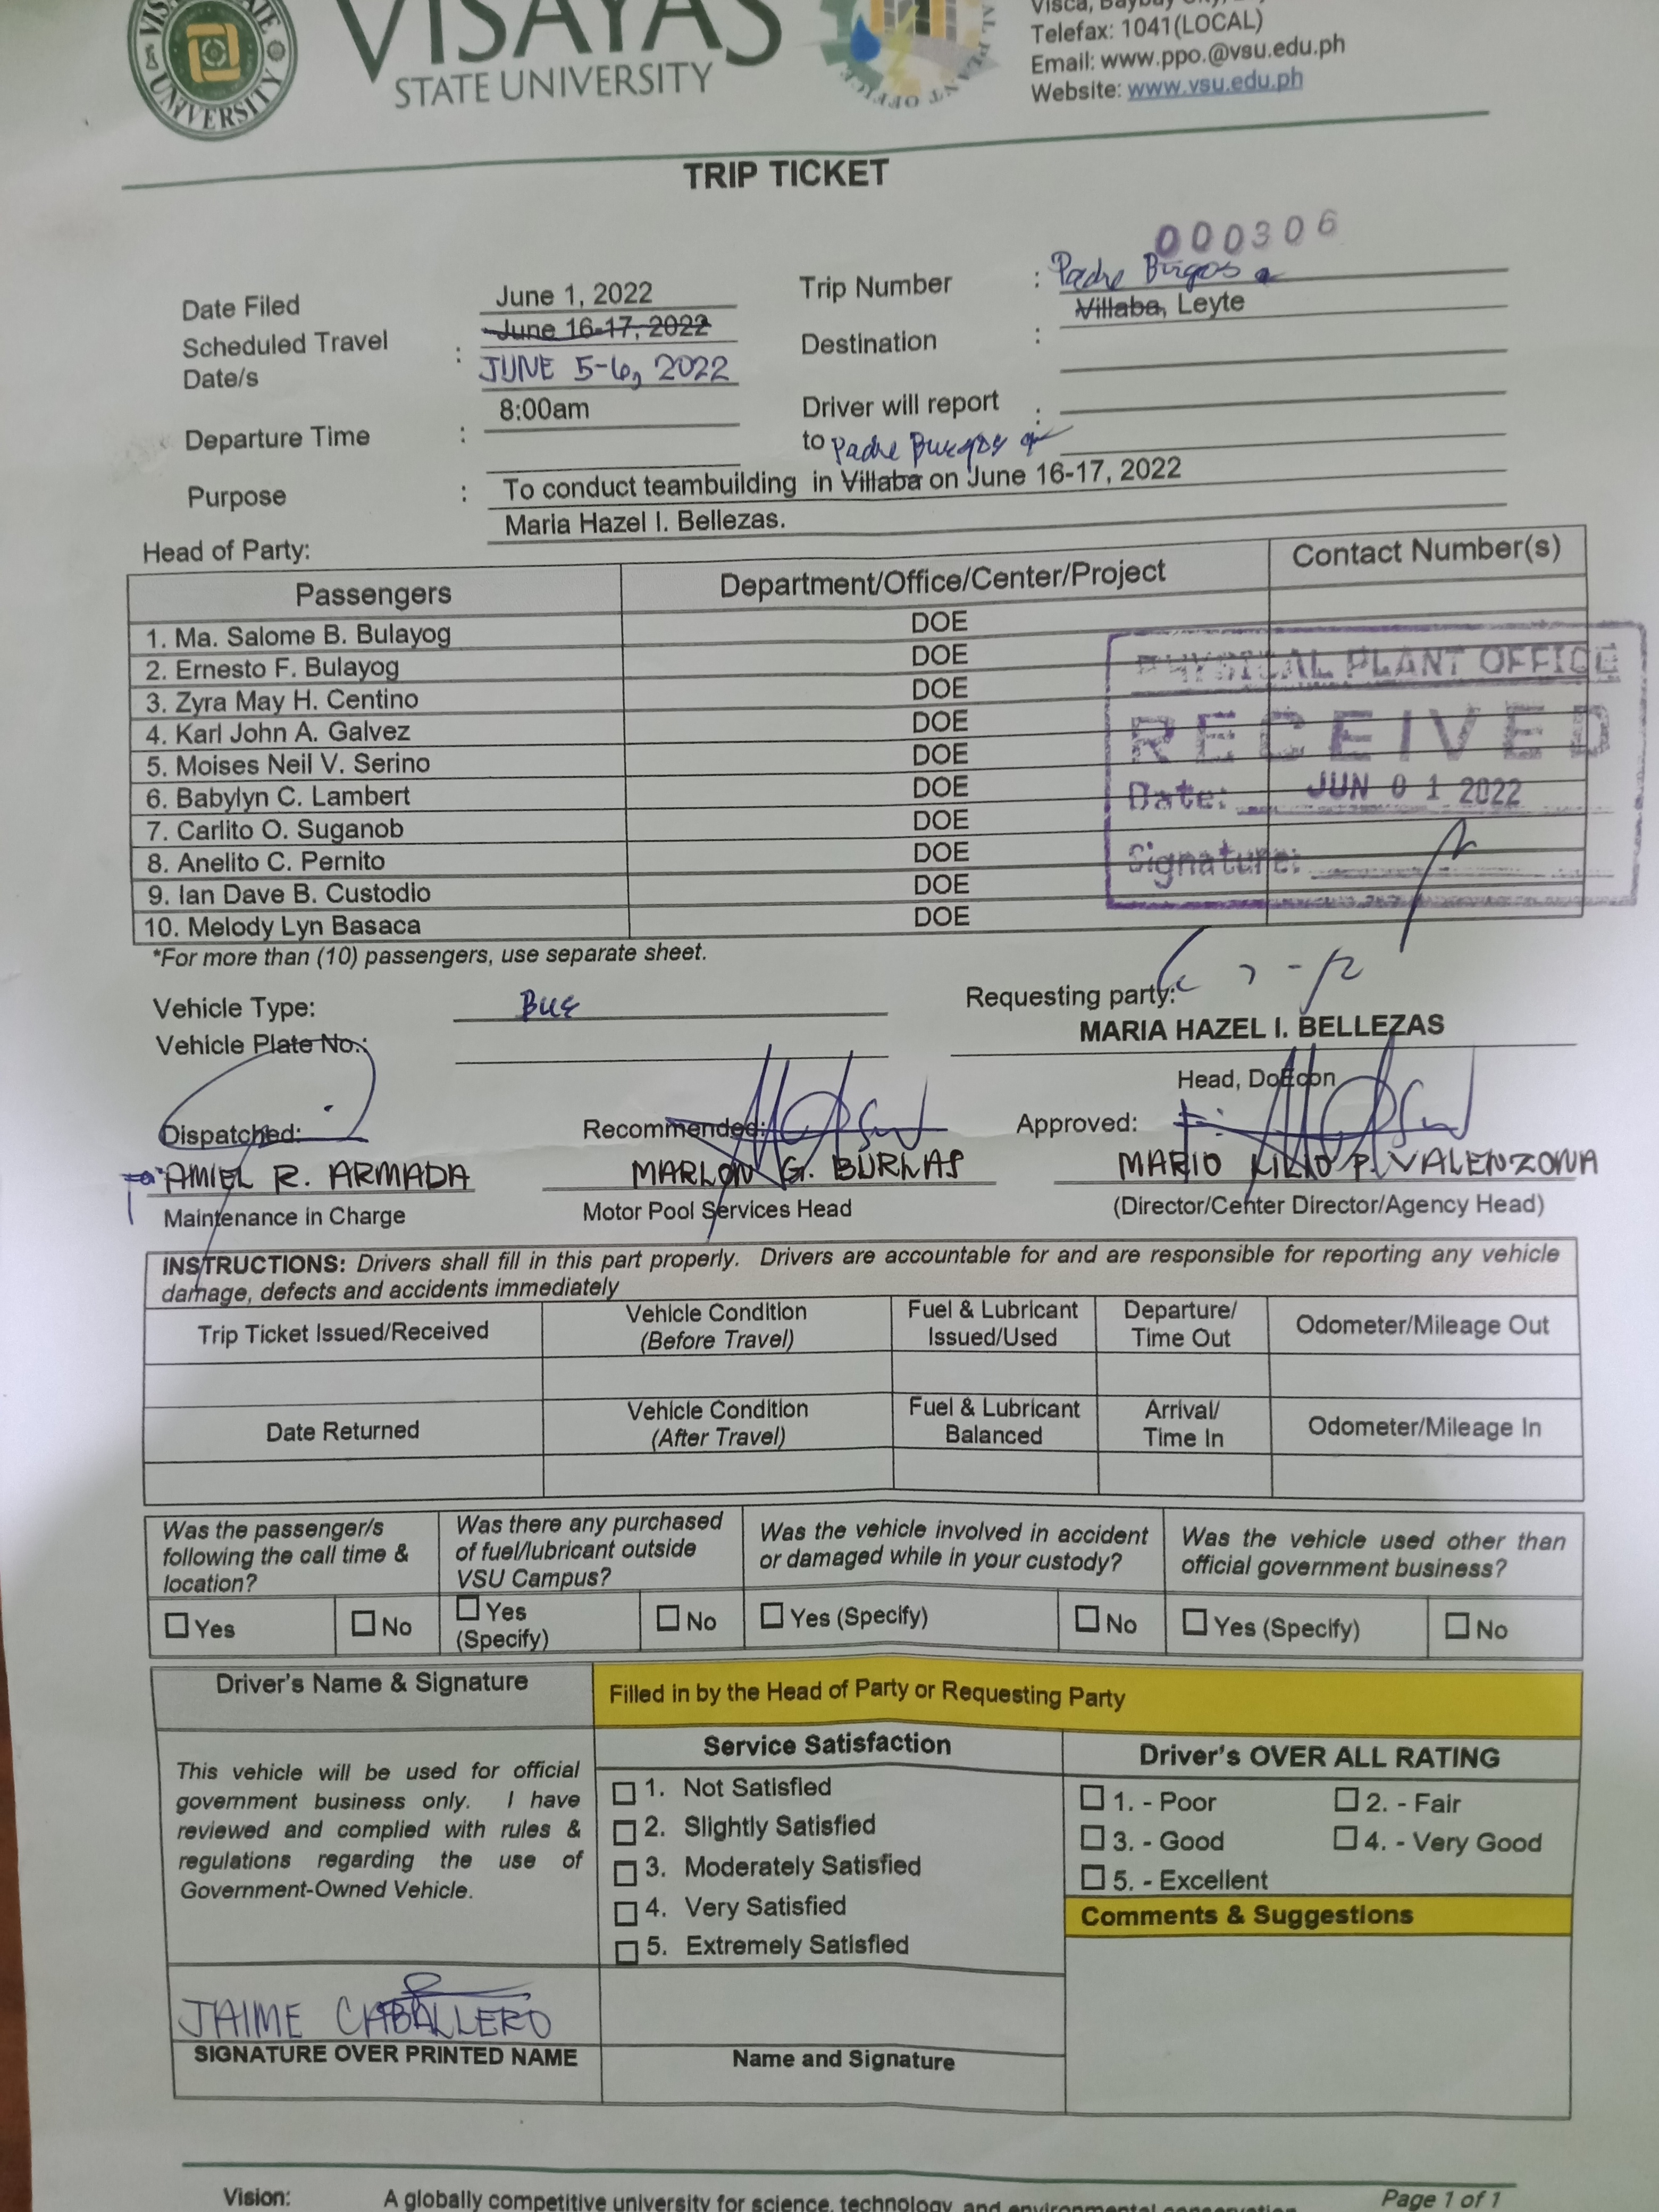 VISAYAS
STATE UNIVERSITY
UNIVERSITY
Visca, Baybay
Telefax: 1041(LOCAL)
Email: www.ppo.@vsu.edu.ph
Website: www.vsu.edu.ph
TRIP TICKET
000306
Date Filed June 1, 2022
Trip Number : Padre Burgos
Scheduled Travel Date/s : June 16-17, 2022
JUNE 5-6, 2022
Destination : Villaba, Leyte
Departure Time : 8:00am
Driver will report to : Padre Burgos
Purpose : To conduct teambuilding in Villaba on June 16-17, 2022
Head of Party: Maria Hazel I. Bellezas.
Passengers Department/Office/Center/Project Contact Number(s)
1. Ma. Salome B. Bulayog DOE
2. Ernesto F. Bulayog DOE
3. Zyra May H. Centino DOE
4. Karl John A. Galvez DOE
5. Moises Neil V. Serino DOE
6. Babylyn C. Lambert DOE
7. Carlito O. Suganob DOE
8. Anelito C. Pernito DOE
9. Ian Dave B. Custodio DOE
10. Melody Lyn Basaca DOE
PHYSICAL PLANT OFFICE
RECEIVED
Date: JUN 01 2022
Signature:
*For more than (10) passengers, use separate sheet.
Vehicle Type: Bus
Requesting party:
Vehicle Plate No.:
MARIA HAZEL I. BELLEZAS
Head, DoEcon
Dispatched:
Recommended:
Approved:
for AMIEL R. ARMADA
MARLON G. BURLAS
MARIO LILIO P. VALENZONA
Maintenance in Charge
Motor Pool Services Head
(Director/Center Director/Agency Head)
INSTRUCTIONS: Drivers shall fill in this part properly. Drivers are accountable for and are responsible for reporting any vehicle
damage, defects and accidents immediately
Trip Ticket Issued/Received
Vehicle Condition
(Before Travel)
Fuel & Lubricant
Issued/Used
Departure/
Time Out
Odometer/Mileage Out
Date Returned
Vehicle Condition
(After Travel)
Fuel & Lubricant
Balanced
Arrival/
Time In
Odometer/Mileage In
Was the passenger/s
following the call time &
location?
Was there any purchased
of fuel/lubricant outside
VSU Campus?
Was the vehicle involved in accident
or damaged while in your custody?
Was the vehicle used other than
official government business?
Yes
No
Yes
(Specify)
No
Yes (Specify)
No
Yes (Specify)
No
Driver's Name & Signature
Filled in by the Head of Party or Requesting Party
This vehicle will be used for official
government business only. I have
reviewed and complied with rules &
regulations regarding the use of
Government-Owned Vehicle.
Service Satisfaction
1. Not Satisfied
2. Slightly Satisfied
3. Moderately Satisfied
4. Very Satisfied
5. Extremely Satisfied
Driver's OVER ALL RATING
1. - Poor
2. - Fair
3. - Good
4. - Very Good
5. - Excellent
Comments & Suggestions
JAIME CABALLERO
SIGNATURE OVER PRINTED NAME
Name and Signature
Vision: A globally competitive university for science, technology, and environmental conservation
Page 1 of 1